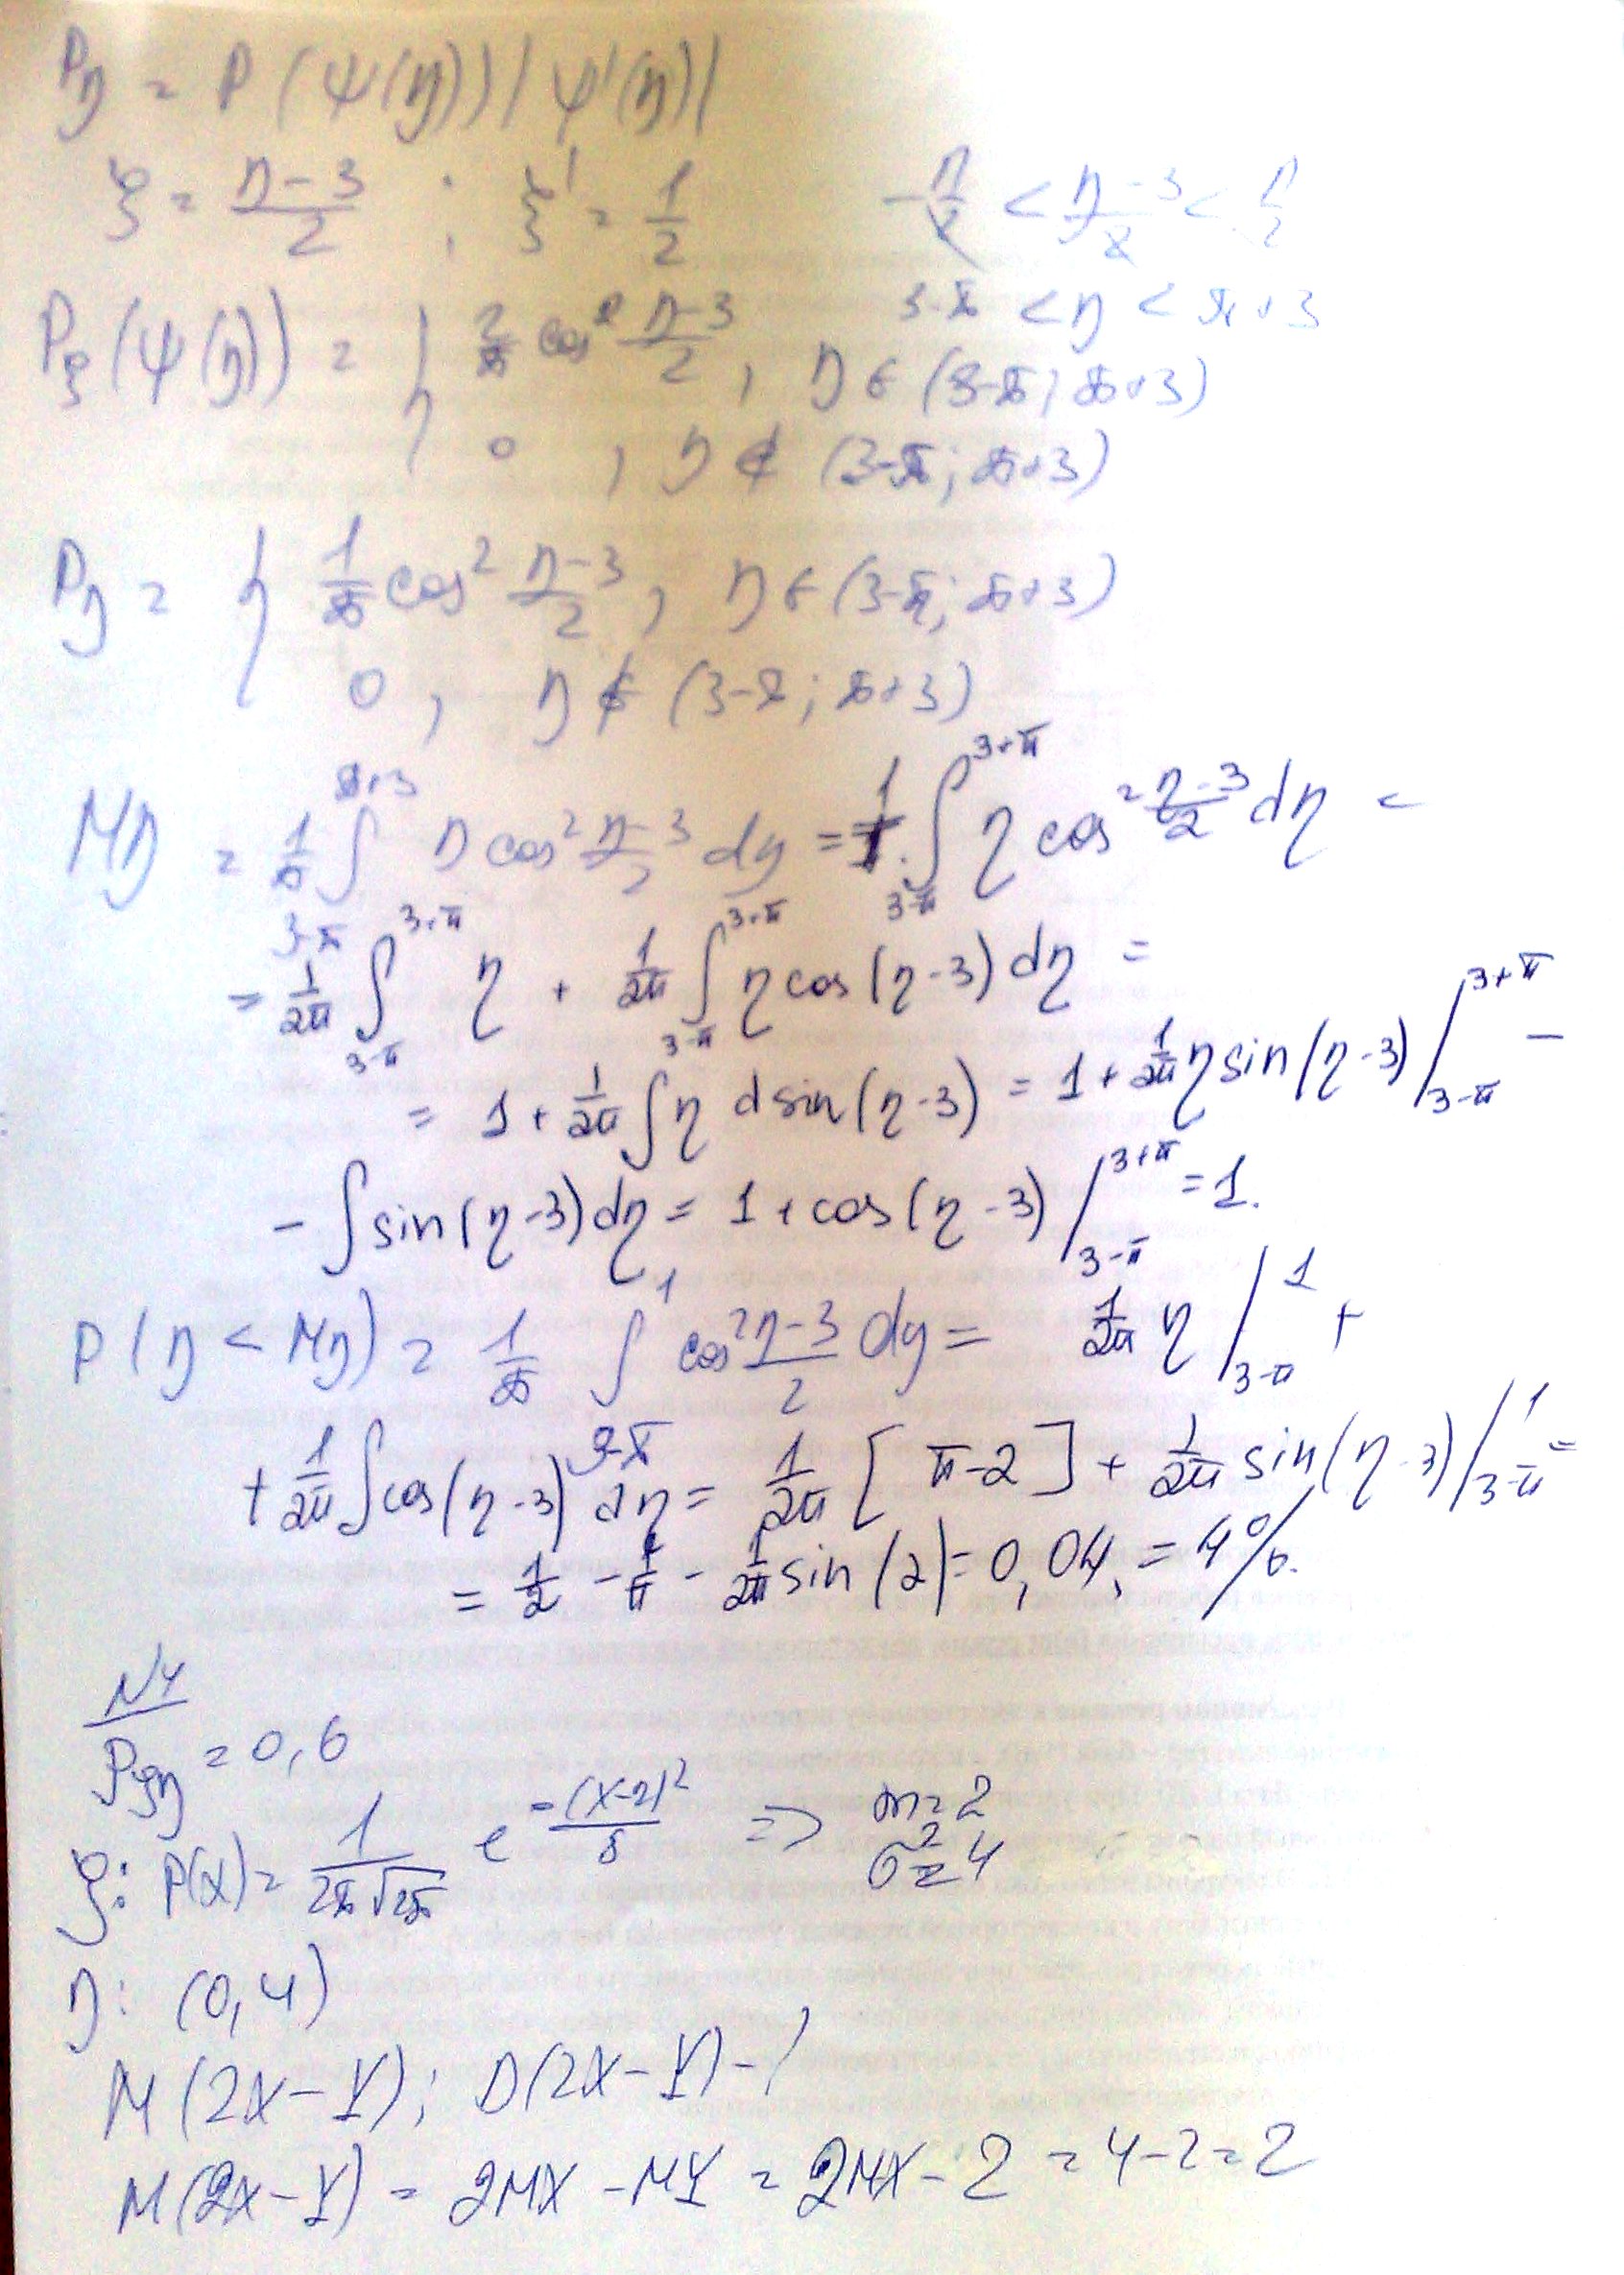 Pη = P(ψ(η))|ψ'(η)|
ξ = (η-3)/2 ; ξ' = 1/2 -π/2 < (η-3)/2 < π/2
3-π < η < π+3
Pξ(ψ(η)) = { 2/π cos² (η-3)/2 , η ∈ (3-π; π+3)
0 , η ∉ (3-π; π+3)
Pη = { 1/π cos² (η-3)/2 , η ∈ (3-π; π+3)
0 , η ∉ (3-π; π+3)
Mη = 1/π ∫_{3-π}^{π+3} η cos² (η-3)/2 dy = 1/π · ∫_{3-π}^{3+π} η cos² (η-3)/2 dη =
= 1/2π ∫_{3-π}^{3+π} η + 1/2π ∫_{3-π}^{3+π} η cos(η-3) dη =
= 1 + 1/2π ∫ η d sin(η-3) = 1 + 1/2π η sin(η-3) |_{3-π}^{3+π} -
- ∫ sin(η-3) dη = 1 + cos(η-3) |_{3-π}^{3+π} = 1.
P(η < Mη) = 1/π ∫_{3-π}^{1} cos² (η-3)/2 dy = 1/2π η |_{3-π}^{1} +
+ 1/2π ∫ cos(η-3) dη = 1/2π [π-2] + 1/2π sin(η-3) |_{3-π}^{1} =
= 1/2 - 1/π - 1/2π sin(2) = 0,04 = 4%.
N4
ρξη = 0,6
ξ: P(x) = 1/(2π√2π) e^{-(x-2)²/8} => m = 2
σ² = 4
η: (0,4)
M(2X-Y); D(2X-Y) - ?
M(2X-Y) = 2MX - MY = 2MX - 2 = 4-2 = 2